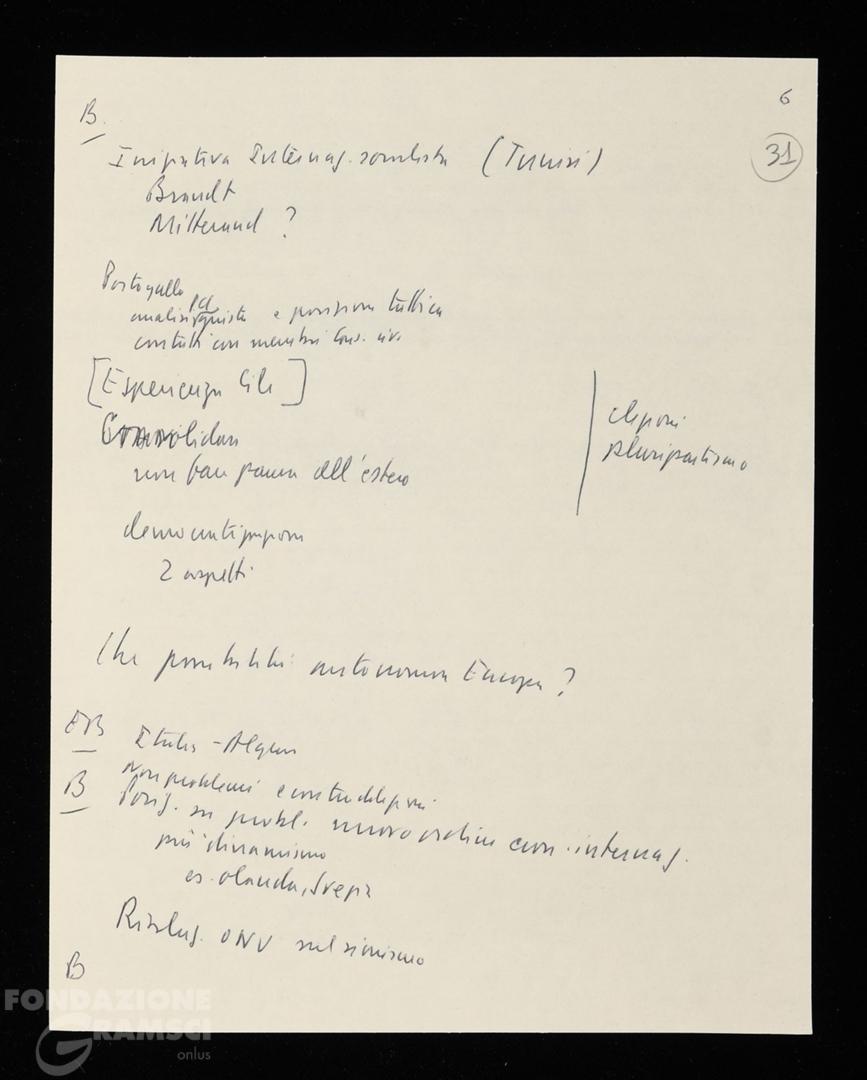 6
31
B.
Iniziativa Internaz. socialista (Tunisi)
Brandt
Mitterand ?
Portogallo
pci
analisi e posizione tattica
contatti con membri Cons. riv.
[Esperienza Cile]
elezioni
pluripartitismo
Consolidare
non fare paura all'estero
2 aspetti
Che possibilità autonoma Europa ?
EB
Italia - Algeria
Non problemi e contraddizioni
B
Posiz. su probl. nuovo ordine econ. internaz.
più dinamismo
es. olanda, Svezia
Risoluz. ONU sul sionismo
B
FONDAZIONE
GRAMSCI
onlus